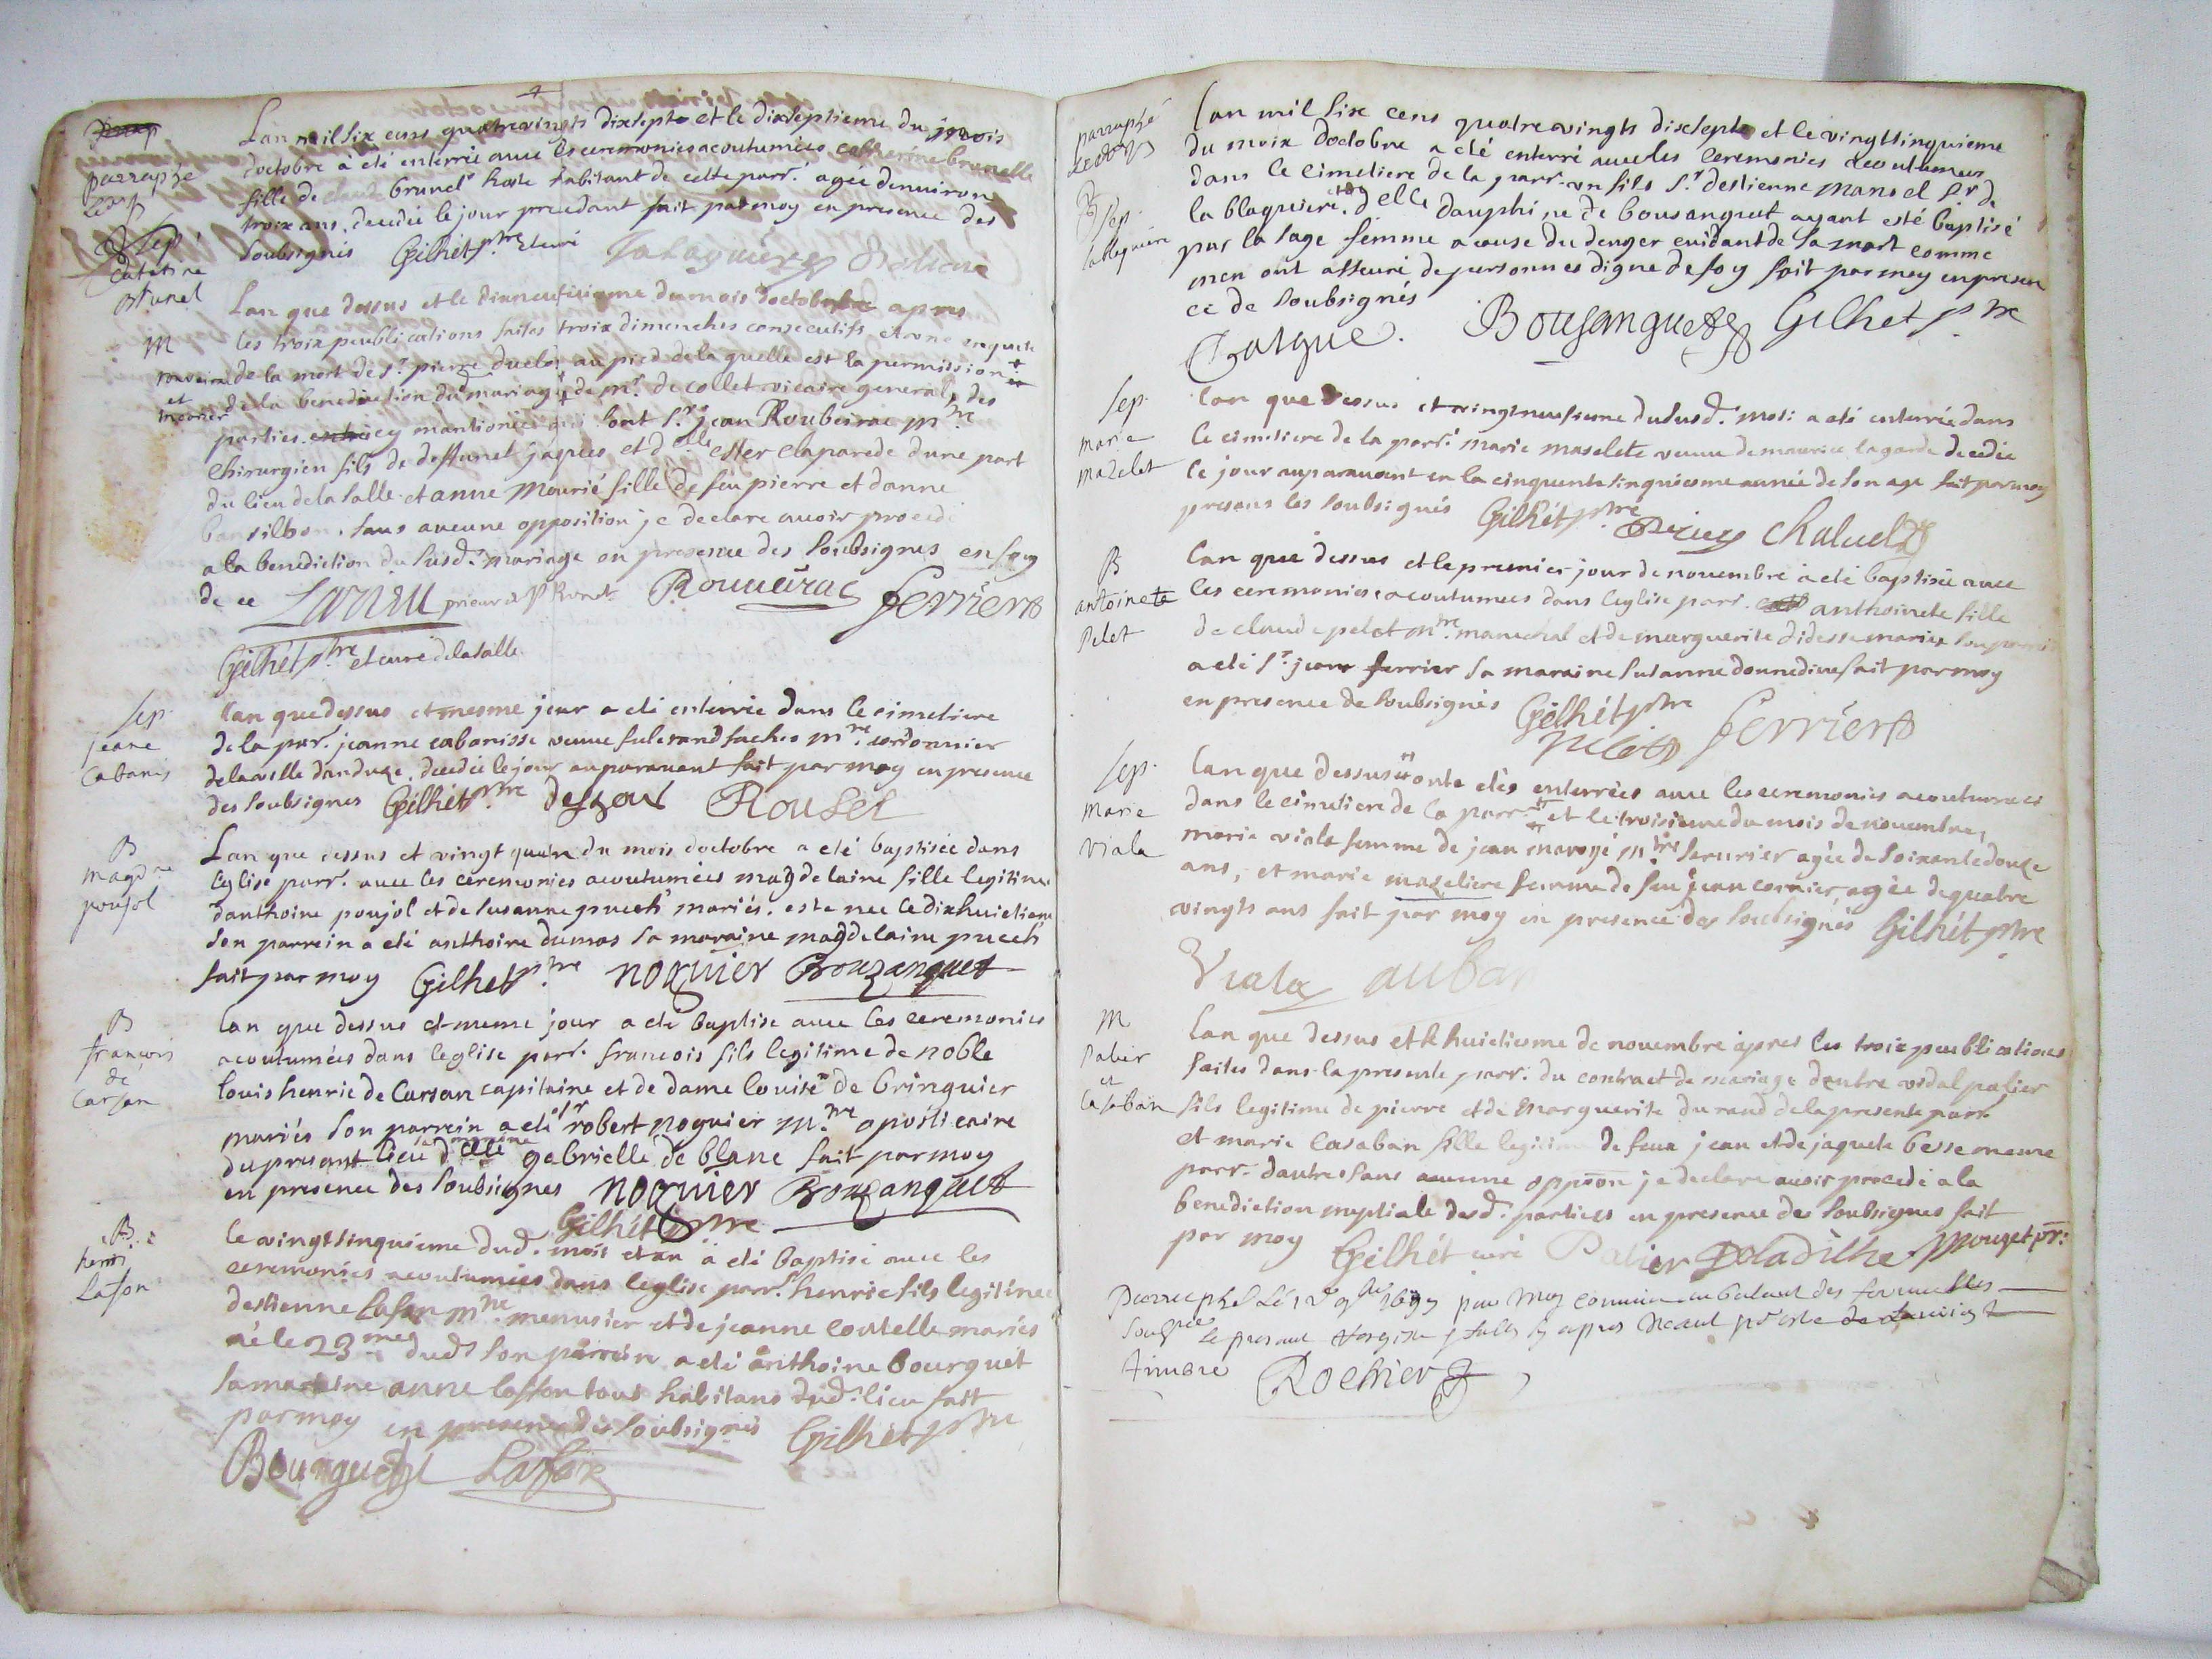 4
parraphé
Sep.
Caterine
Brunel
Lan mil six cens quatrevingts dixsepte et le dixseptieme du mois
doctobre a eté enterrée avec les ceremonies acoutumées catherine brunelle
fille de brunel hoste habitant de cette parr. agée denviron
trois ans, decedée le jour precedant fait par moy en presence des
soubsignés Gilhét ptre
M
et
mourier
Lan que dessus et le dixneufviesme du mois doctobre apres
les troix peublications faites troix dimenches consecutifs et une enquete
de la mort de Sr. pierre au pied de la quelle est la permission
de la benediction du mariage de Mr. de collet vicaire general, des
parties icy mantionées qui sont Sr. jean Rouveirac mre.
chirurgien fils de deffunct jaques et delle ester claparede dune part
du lieu de la salle et anne Mourié fille de feu pierre et danne
sans aucune opposition je declare avoir procedé
a la benediction du susd. mariage en presence des soubsignes en foy
de ce prieur Rouveirac ferrier
Gilhét ptre et curé de la salle
Sep.
jeane
Cabanis
Lan que dessus et mesme jour a eté enterrée dans le cimetiere
de la parr. jeanne cabanisse veuve mre. cordonnier
de la ville danduze, decedée le jour auparavant fait par moy en presence
des soubsignes Gilhét ptre Rousel
B
magdne
poujol
Lan que dessus et vingt du mois doctobre a eté baptisée dans
leglise parr. avec les ceremonies acoutumées magdelaine fille legitime
danthoine poujol et de susanne puech mariés, este nee le dixhuictieme
son parrein a eté anthoine dumas sa maraine magdelaine puech
fait par moy Gilhét ptre noguier Bouzanquet
B
francois
de
Carsan
Lan que dessus et meme jour a eté baptise avec les ceremonies
acoutumées dans leglise parr. francois fils legitime de noble
louis henric de Carsan capitaine et de dame louise de bringuier
mariés son parrein a eté Sr robert noguier mre. apoticaire
du presant lieu maraine delle gabrielle de blanc fait par moy
en presence des soubsignes noguier Bouzanquet
Gilhét ptre
B
henri
Lafon
le vingtsinquieme dud. mois et an a eté baptisé avec les
ceremonies acoutumées dans leglise parr. henric fils legitime
destienne lafon mre. menusier et de jeanne coutelle mariés
né le 23me dud. son parrein a eté anthoine bourguet
sa maraine anne lafon tous habitans dud. lieu fait
par moy en presence des soubsignés Gilhét ptre
Bourguet Lafon
parraphé
Sep.
lablaquiere
Lan mil sixe cens quatrevingts dixsepte et le vingtsinquieme
du moix doctobre a eté enterré avec les ceremonies acoutumees
dans le cimetiere de la parr. un fils Sr. destienne manoel Sr de
la blaquiere et de delle dauphine de bousanquet ayant esté baptisé
par la sage femme a cause du denger evidant de sa mort comme
men ont asseuré de personnes digne de foy fait par moy en presen
ce de soubsignés
Bousanquet Gilhet ptre
Sep.
marie
mazelet
Lan que dessus et vingtneufieme dudusd. mois a eté enterrée dans
le cimetiere de la parr. marie maselete veuve de maurice lagarde decedée
le jour auparavant en la cinquente sinquiesme année de son age fait par moy
presens les soubsignés Gilhét ptre
B
antoinete
Pelet
Lan que dessus et le premier jour de novembre a eté baptisée avec
les ceremonies acoutumees dans leglise parr. anthoinete fille
de claude pelet mre. marechal et de marguerite mariés son parrein
a eté Sr. jean ferrier sa maraine susanne fait par moy
en presence de soubsignés Gilhét ptre
pelet ferrier
Sep.
Marie
Viala
Lan que dessus onte etées enterrées avec les ceremonies acoutumees
dans le cimetiere de la parr. et le troisieme du mois de novembre,
marie viale femme de jean mre. serurier agée de soixantedouze
ans, et marie mazeliere femme de feu jean cornier agée de quatre
vingts ans fait par moy en presence des soubsignés Gilhét ptre
Viala
M
Palier
et
Casaban
Lan que dessus et le huictiesme de novembre apres les troix peublications
faites dans la presente parr. du contract de mariage dentre vidal palier
fils legitime de pierre et de Marguerite durand de la presente parr.
et marie Casaban fille legitime de feux jean et de jaquete besse meme
parr. dautre sans aucune oppoon je declare avoir procedé a la
benediction nuptiale desd. parties en presence des soubsignes fait
par moy Gilhét curé Palier
1697 par moy commis
le presant
timbre Rochier